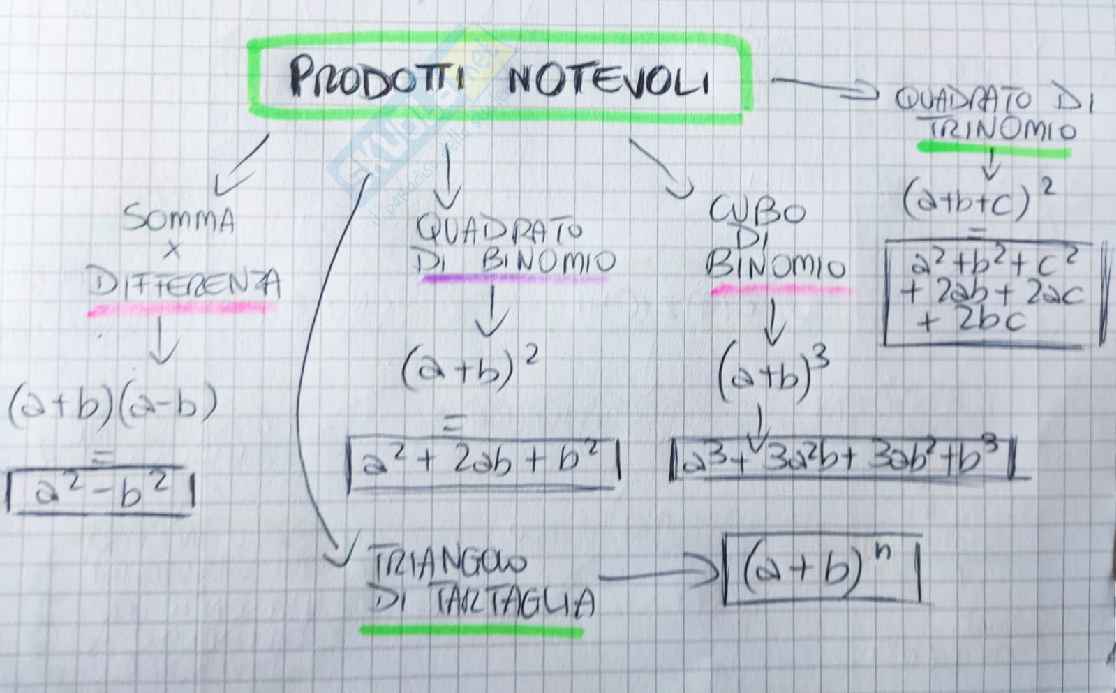 PRODOTTI NOTEVOLI
QUADRATO DI
TRINOMIO
(a+b+c)²
=
a²+b²+c²
+ 2ab + 2ac
+ 2bc
SOMMA
x
DIFFERENZA
(a+b)(a-b)
=
a²-b²
QUADRATO
DI BINOMIO
(a+b)²
=
a² + 2ab + b²
CUBO
DI
BINOMIO
(a+b)³
a³+ 3a²b+ 3ab²+b³
TRIANGOLO
DI TARTAGLIA
(a+b)ⁿ